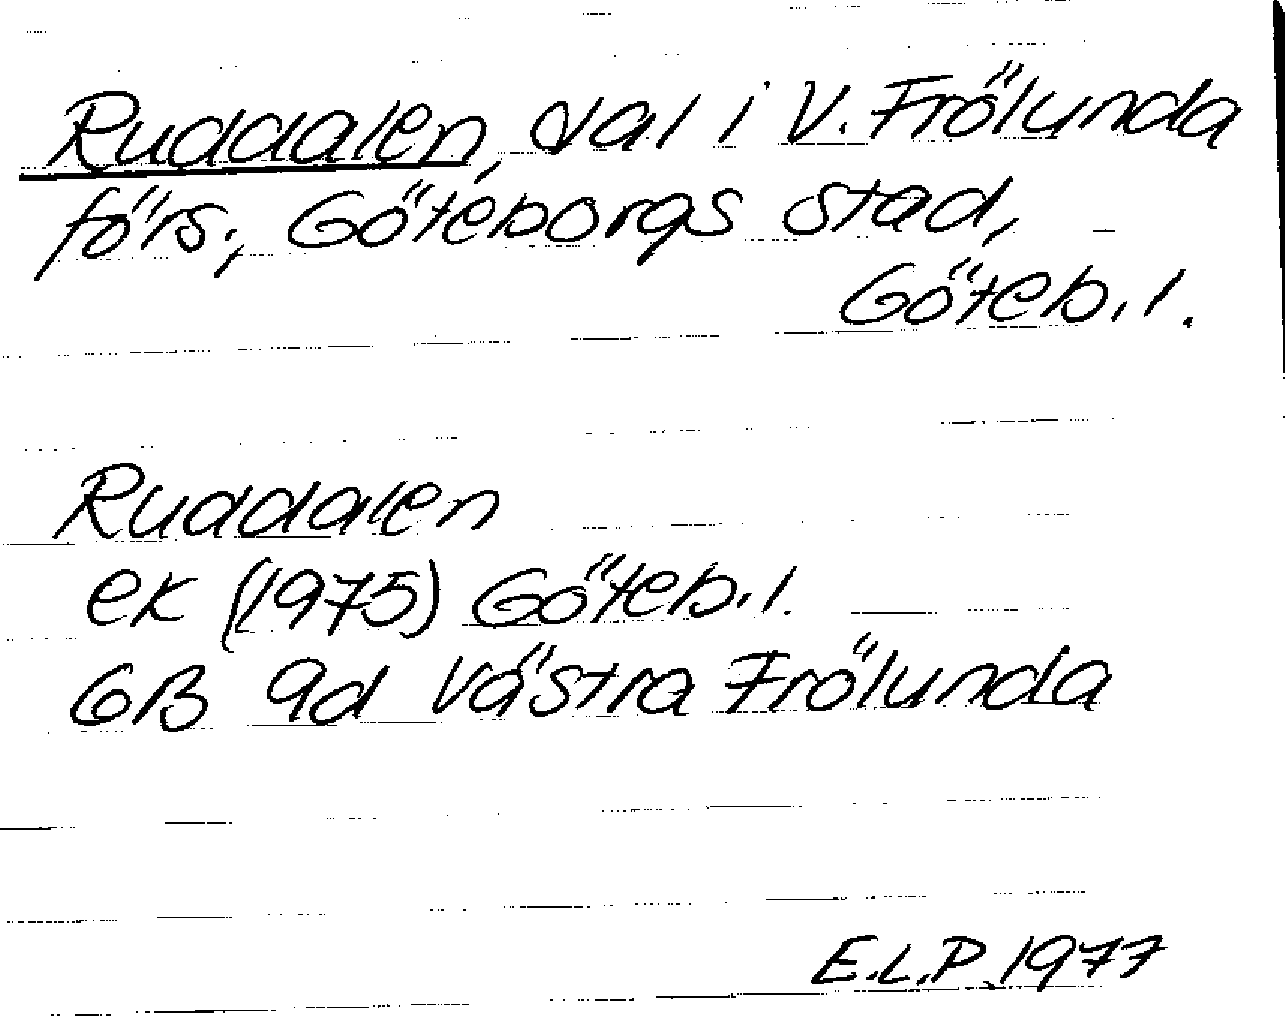 Ruddalen, dal i V. Frölunda
förs., Göteborgs stad,
Göteb. l.
Ruddalen
ek (1975) Göteb. l.
GB 9d Västra Frölunda
E.L.P. 1977